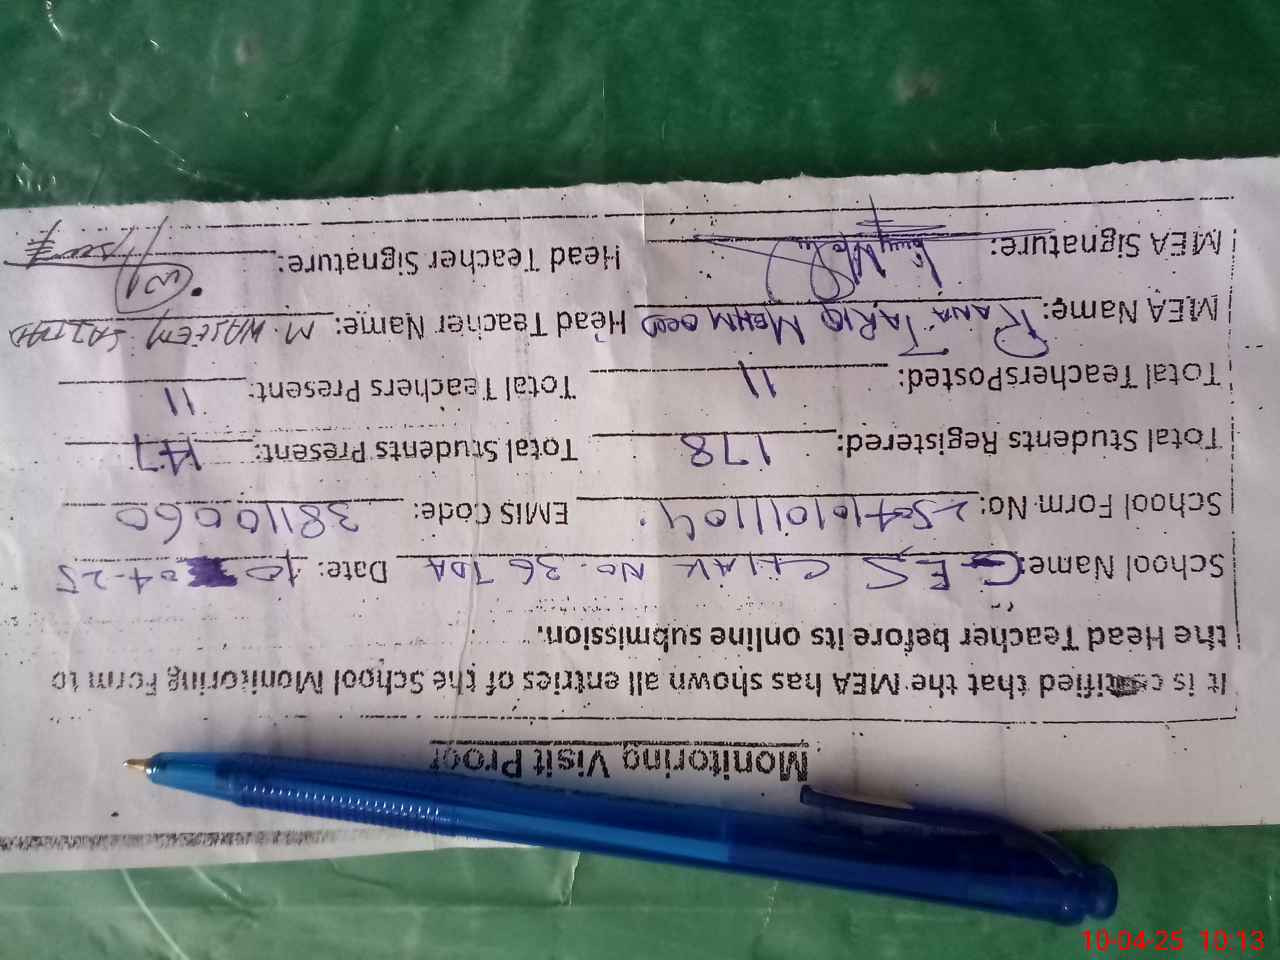 Monitoring Visit Proof
It is certified that the MEA has shown all entries of the School Monitoring Form to
the Head Teacher before its online submission.
School Name: GES CHAK NO. 36 TDA Date: 10-04-25
School Form No: EMIS Code: 38110060
Total Students Registered: 178 Total Students Present: 147
Total TeachersPosted: 11 Total Teachers Present: 11
MEA Name: RANA TARIQ MEHMOOD Head Teacher Name: M. WASEEM SAJJAD
MEA Signature: Head Teacher Signature:
10-04-25 10:13